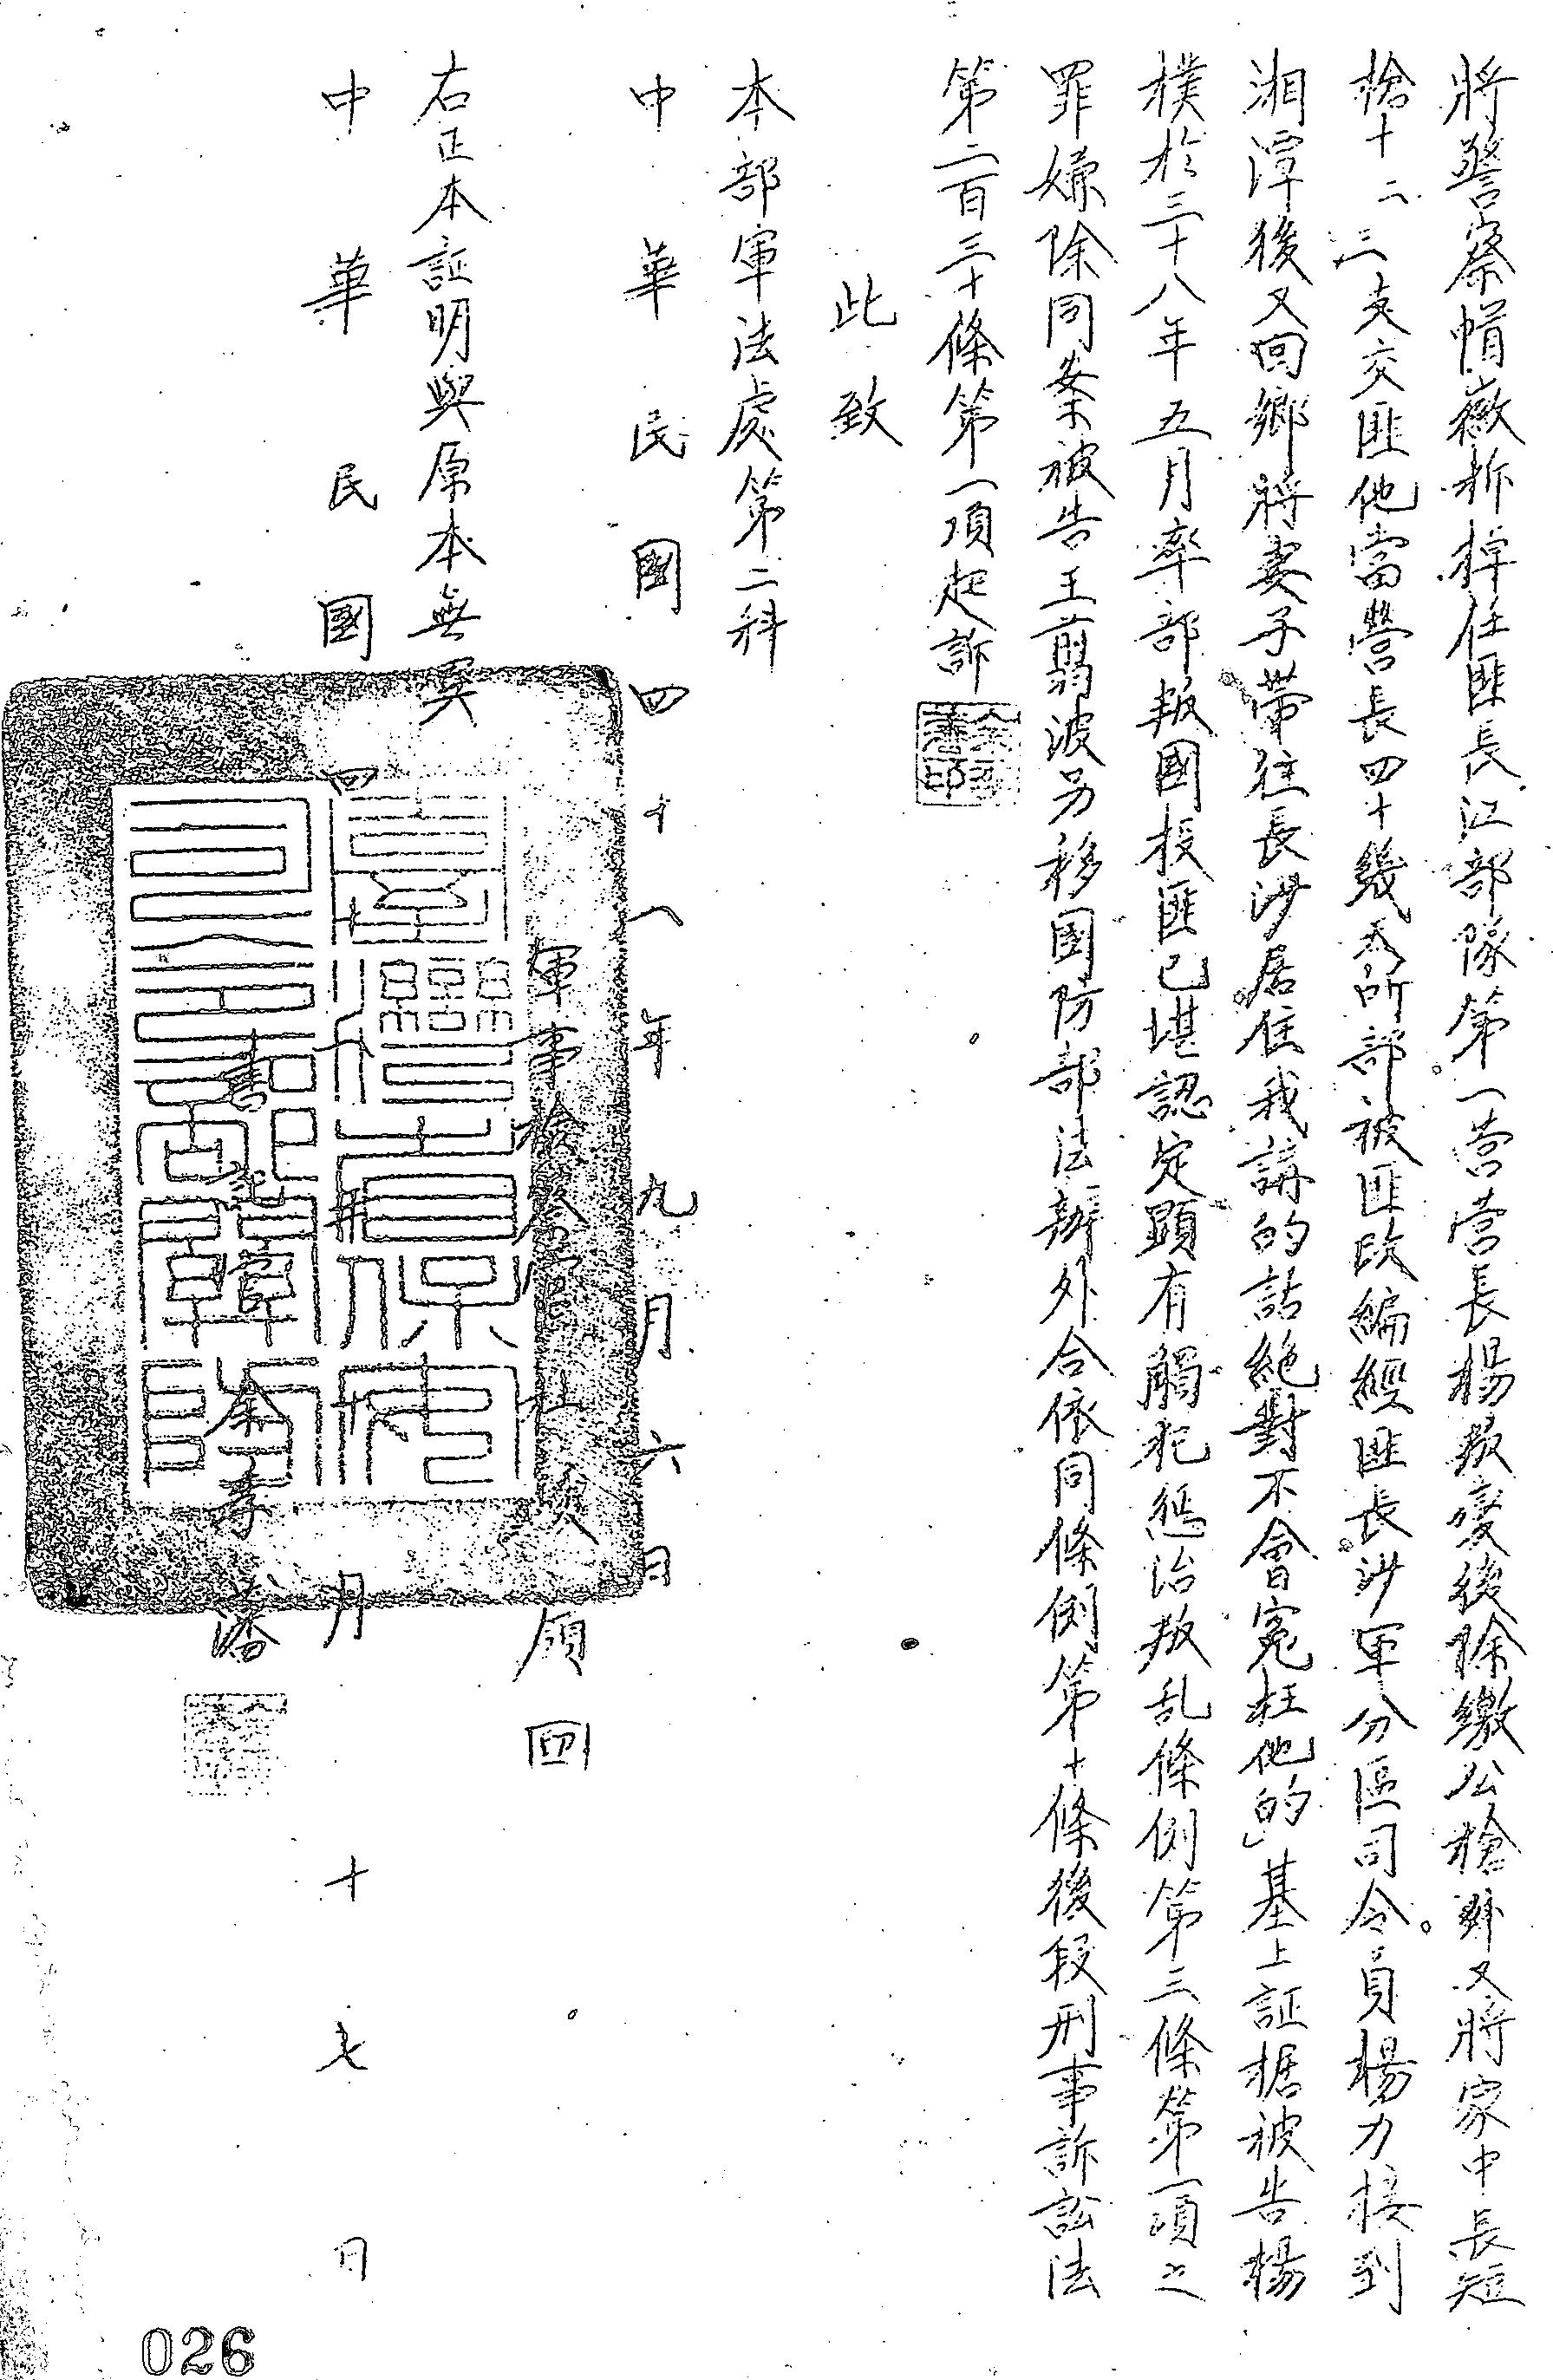 將警察帽徽拆掉任匪長江部隊第一营营长楊叛變後除繳公槍外又將家中長短
槍十二、三支交匪他當營長四十幾天所部被匪改編經匪長沙軍分區司令員楊力接到
湘潭後又回鄉將妻子帶往長沙居住我講的話絕對不會冤枉他的」基上証据被告楊
樸於三十八年五月率部叛國投匪已堪認定顯有觸犯惩治叛乱條例第三條第一項之
罪嫌除同案被告王翦波另移国防部法辦外合依同條例第十條後段刑事訴訟法
第二百三十條第一項起訴
此致
本部軍法處第二科
中華民國四十八年九月六日
軍事檢察官杜 領 囬
右正本証明與原本無異
中華民國四十八年 月十七日
書記官余季潘
026